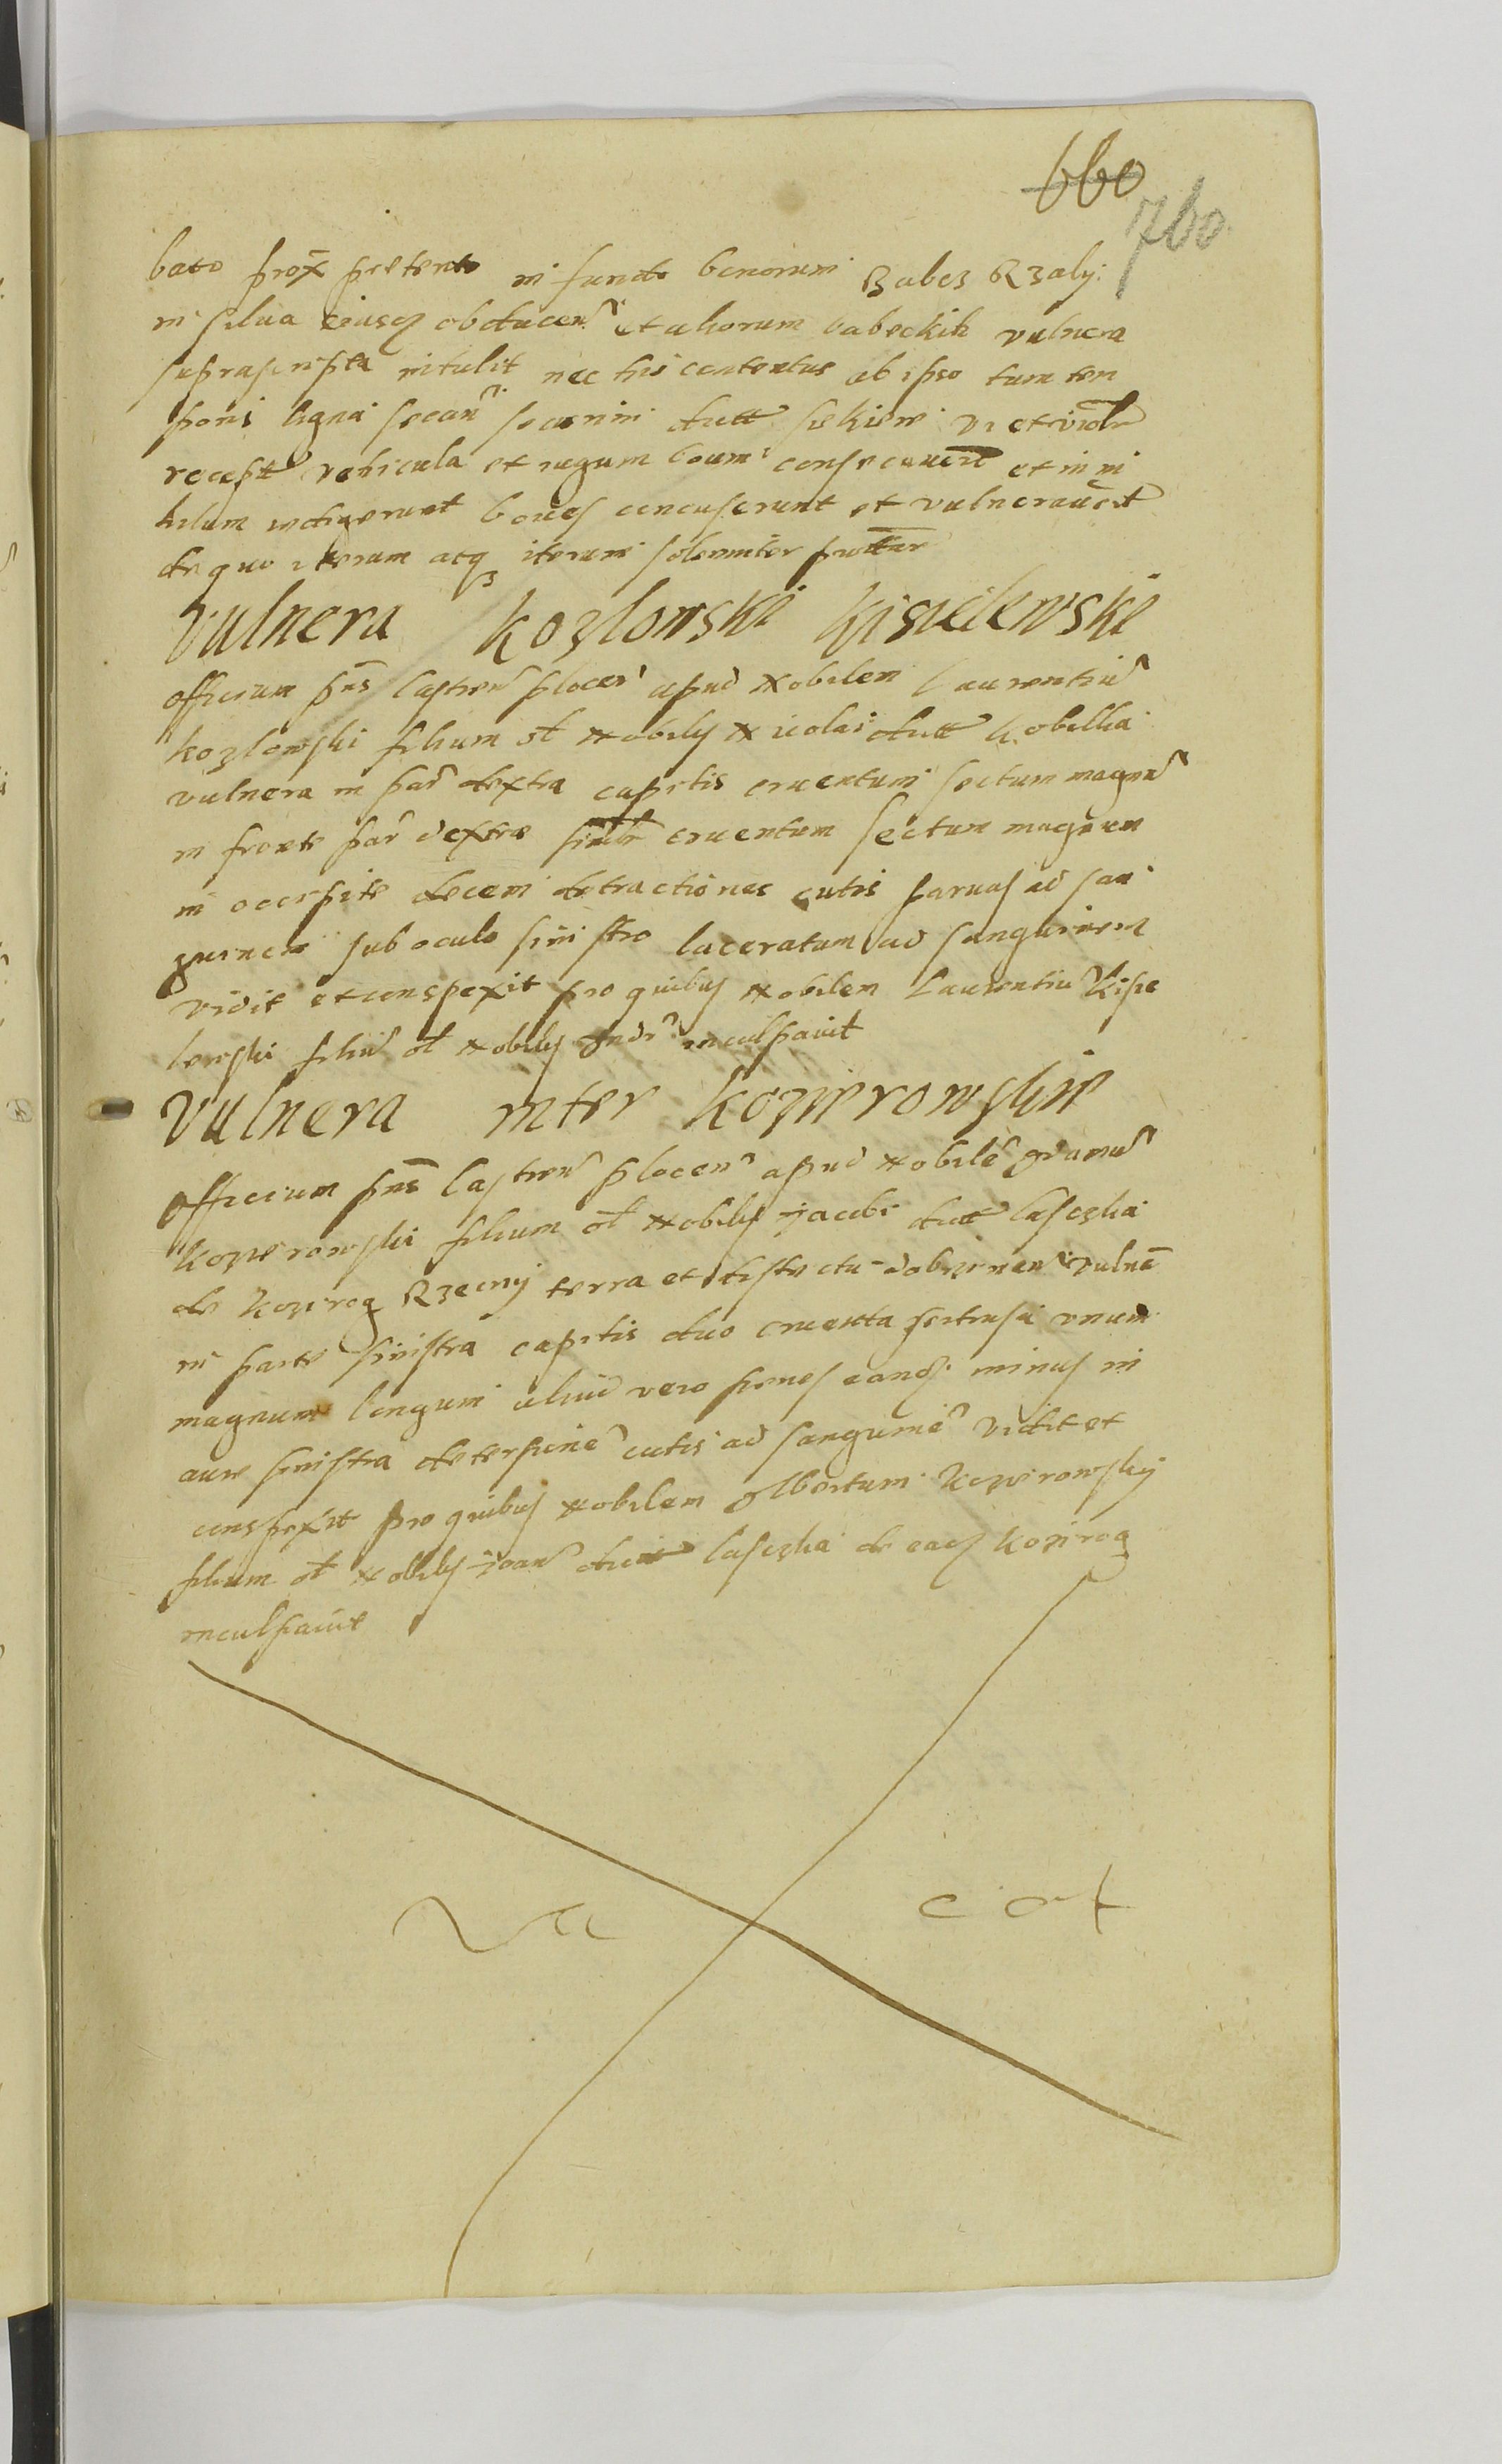 660
760
bato prox preterito in fundo bonorum Babez Rzaly
in silua eiusq obducen et aliorum babeckich vulnera
suprascripta intulit nec his contentus ab ipso tum tem
poris ligna secan securim dictt siekiere vi et violr
receptt vehicula et iugum boum consecauert et in ni
hilum redigerunt boues concuserunt et vulnerauert
de quo iterum atq iterum solenniter prottur
Vulnera Kozlowski Kisielewski
Officium pns Castren plocen apud Nobilem Laurentiu
Kozlowski filium ol Nobilis Nicolai dictt Kobilka
vulnera in par dextra capitis cruentum sectum magnu
in fronte par dextra similr cruentum sectum magnum
in occipite decem detractiones cutis paruas ad san
guinem sub oculo sinistro laceratam ad sanguinem
vidit et conspexit pro quibus Nobilem Laurentiu Kisie
lewski filiu ol Nobilis Andr inculpauit
Vulnera inter Kozirowskie
Officium pns Castren plocen apud Nobile Adamu
Kozierowski filium ol Nobilis Jacobi dictt Lasczka
de Kozirog Rzeczny terra et districtu dobrinen vulne
in parte sinistra capitis duo cruenta unum
magnum longum aliud vero penes eand minus in
aure sinistra cutis ad sanguine vidit et
conspexit pro quibus Nobilem Albertum Kozirowsky
filium ol Nobilis Joan dictt Lasczka de eadz Kozirog
inculpauit
Va cat